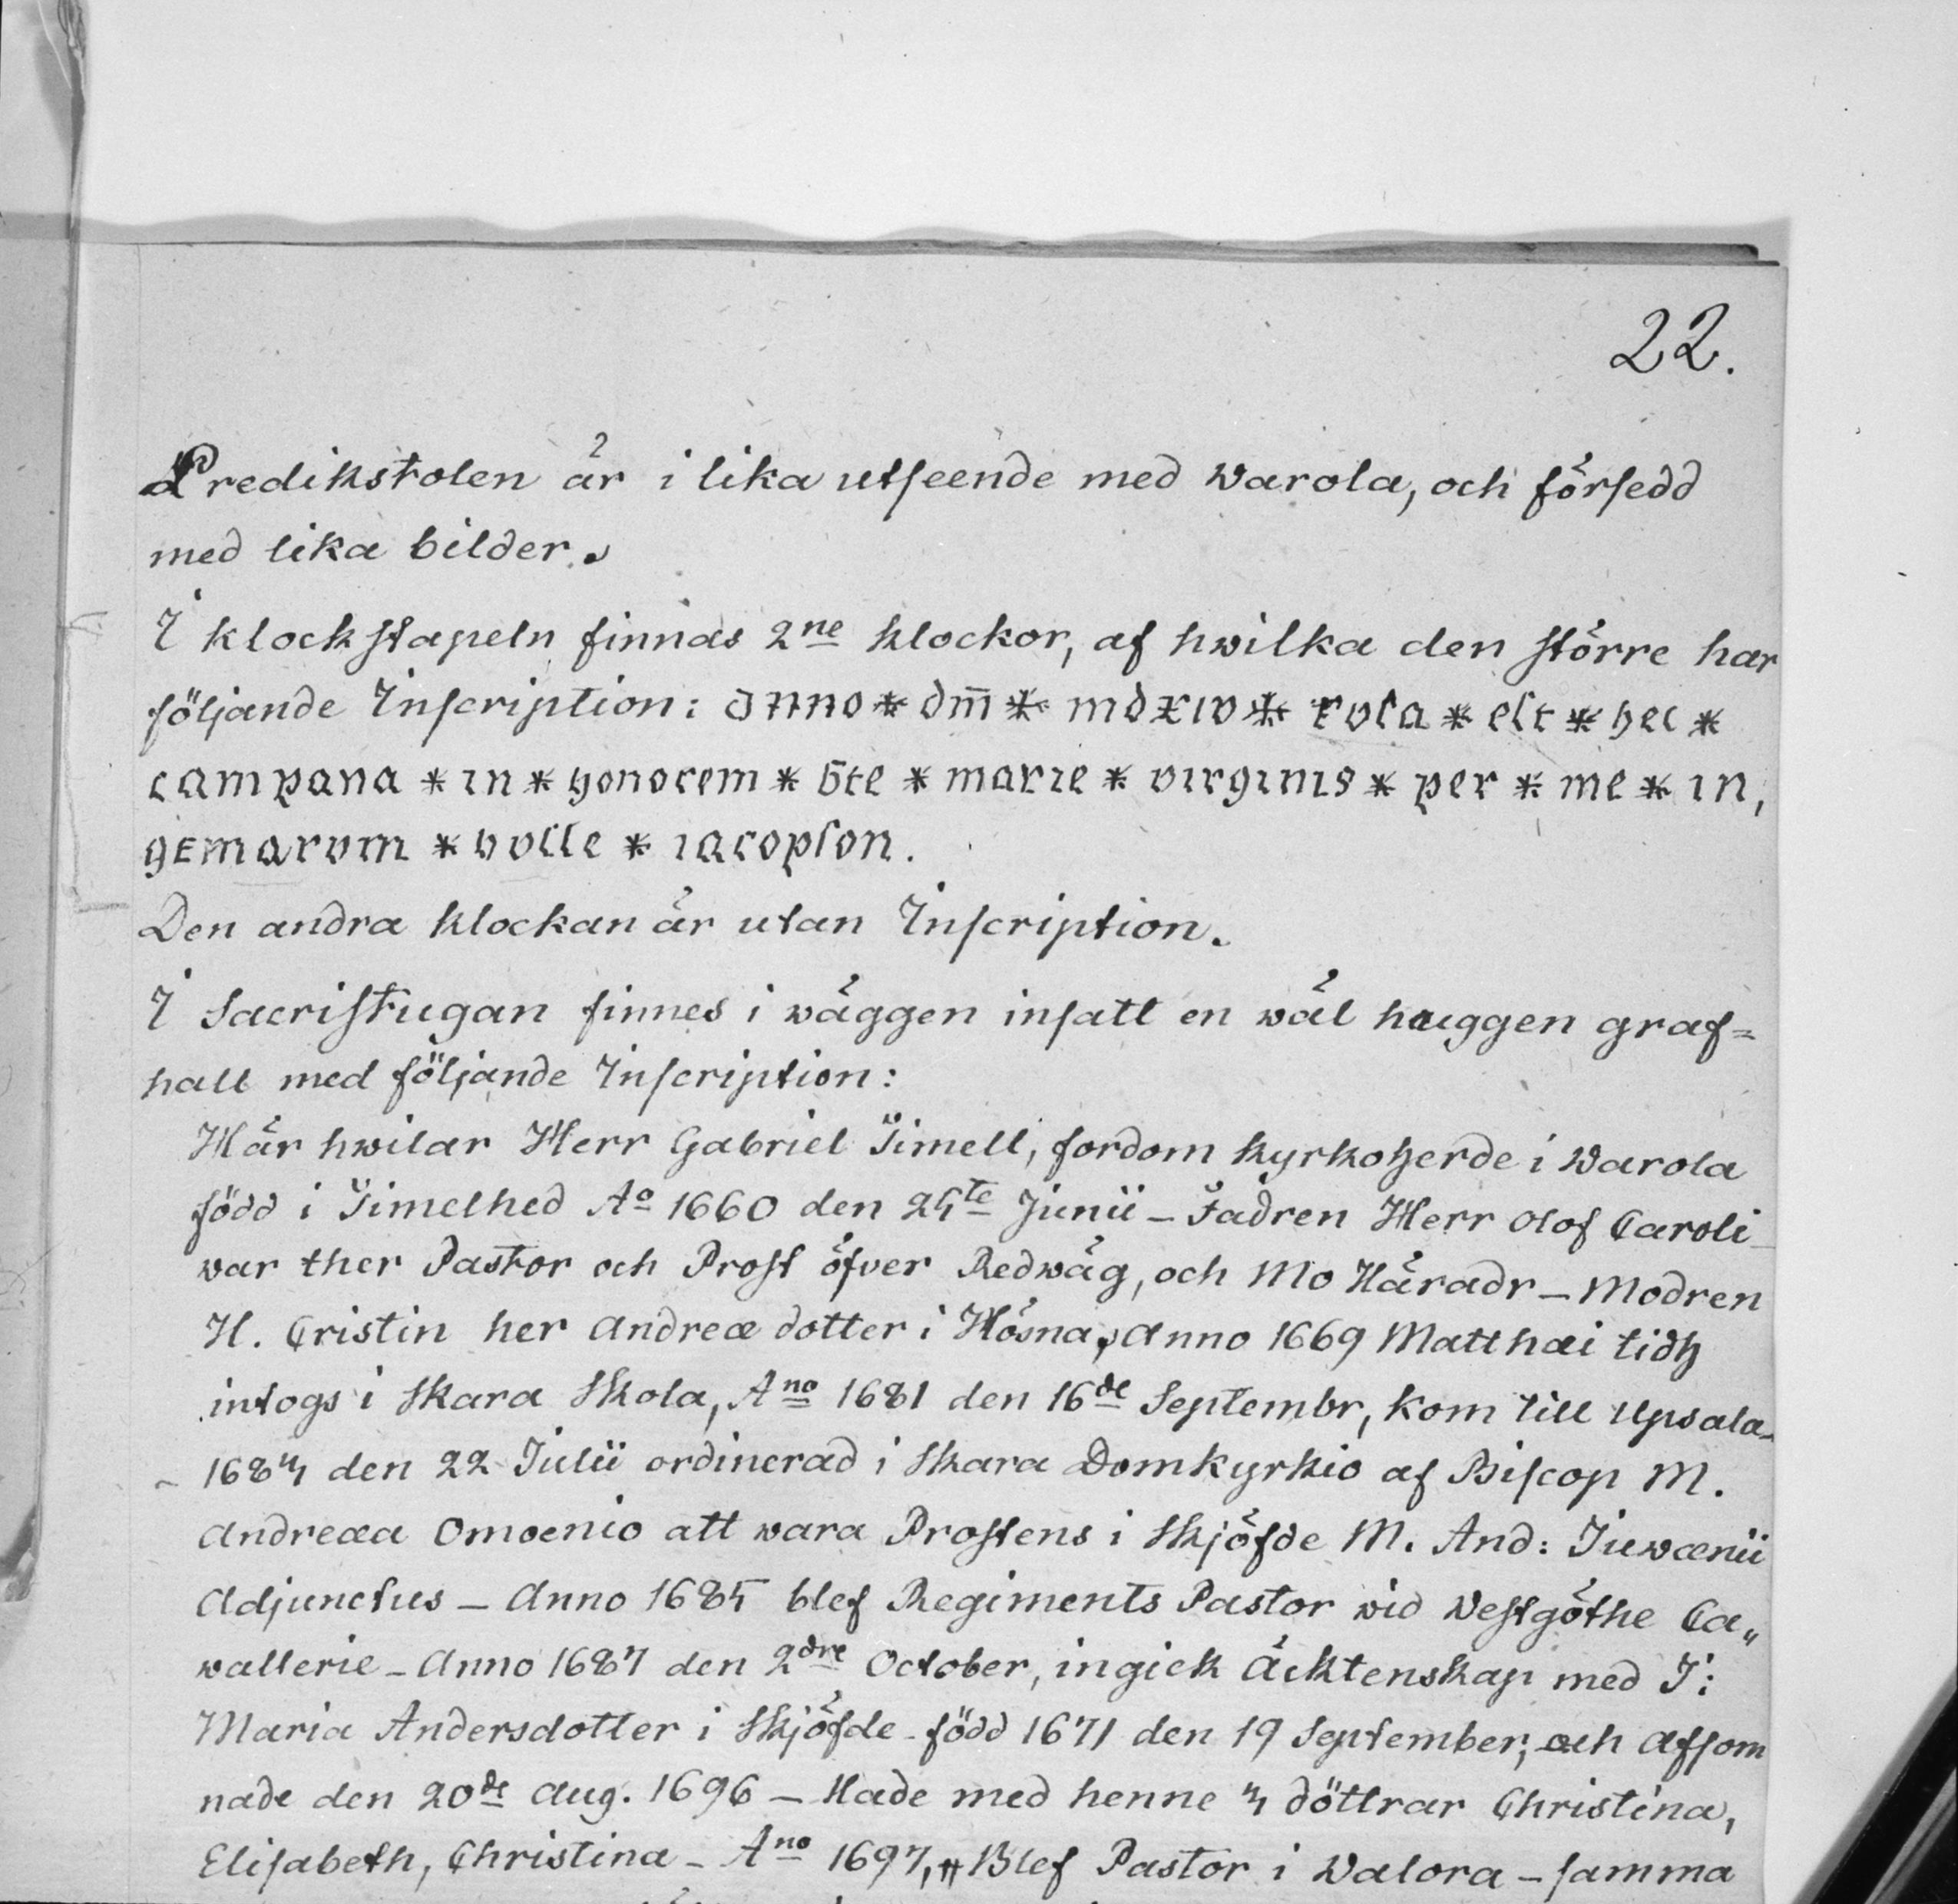 22.
Predikstolen är i lika utseende med Warola, och försedd
med lika bilder.
I klockstapeln finnas 2ne klockor, af hwilka den större har
följande Inscription: Anno * dm̄ * mdxiv * fvsa * est * hec *
campana * in * honorem * b̄te * marie * virginis * per * me * in,
gemarvm * bolle * iacopson.
Den andra klockan är utan Inscription.
I Sacristugan finnes i wäggen insatt en wäl huggen graf=
hall med följande Inscription:
Här hwilar Herr Gabriel Timell, fordom kyrkoherde i Warola
född i Timelhed Ao 1660 den 24te Junii – Fadren Herr Olof Caroli
war ther Pastor och Prost öfver Redwäg, och Mo Häradr – Modren
H. Cristin her Andreæ dotter i Hösna, Anno 1669 Matthæi tidh
intogs i Skara Skola, Ano 1681 den 16de Septembr, kom till Upsala –
– 1684 den 22 Julii ordinerad i Skara Domkyrkio af Biscop M.
Andreæa Omoenio att wara Prostens i Skjöfde M. And: Juwænii
Adjunctus – Anno 1685 blef Regiments Pastor wid Westgöthe Ca„
wallerie – Anno 1687 den 2dre October, ingick Äcktenskap med J:
Maria Andersdotter i Skjöfde – född 1671 den 19 September, och Afsom
nade den 20de Aug. 1696 – Hade med henne 4 döttrar Christina,
Elisabeth, Christina – Ano 1697, Blef Pastor i Walora – samma